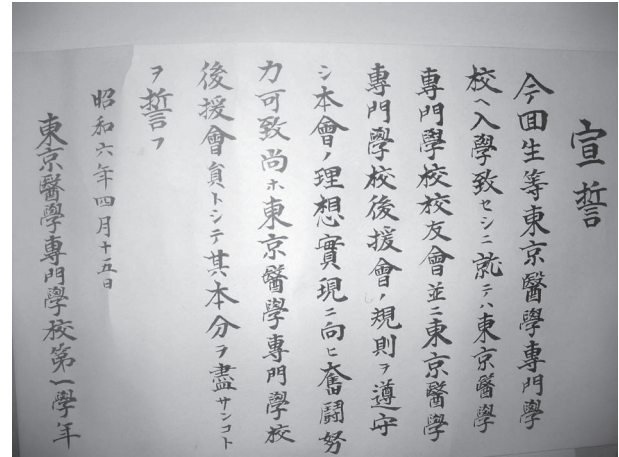 宣誓
今回生等東京醫學專門學
校ヘ入學致セシニ就テハ東京醫學
專門學校校友會並ニ東京醫學
專門學校後援會ノ規則ヲ遵守
シ本會ノ理想實現ニ向ヒ奮鬪努
力可致尚ホ東京醫學專門學校
後援會員トシテ其本分ヲ盡サンコト
ヲ誓フ
昭和六年四月十五日
東京醫學專門學校第一學年